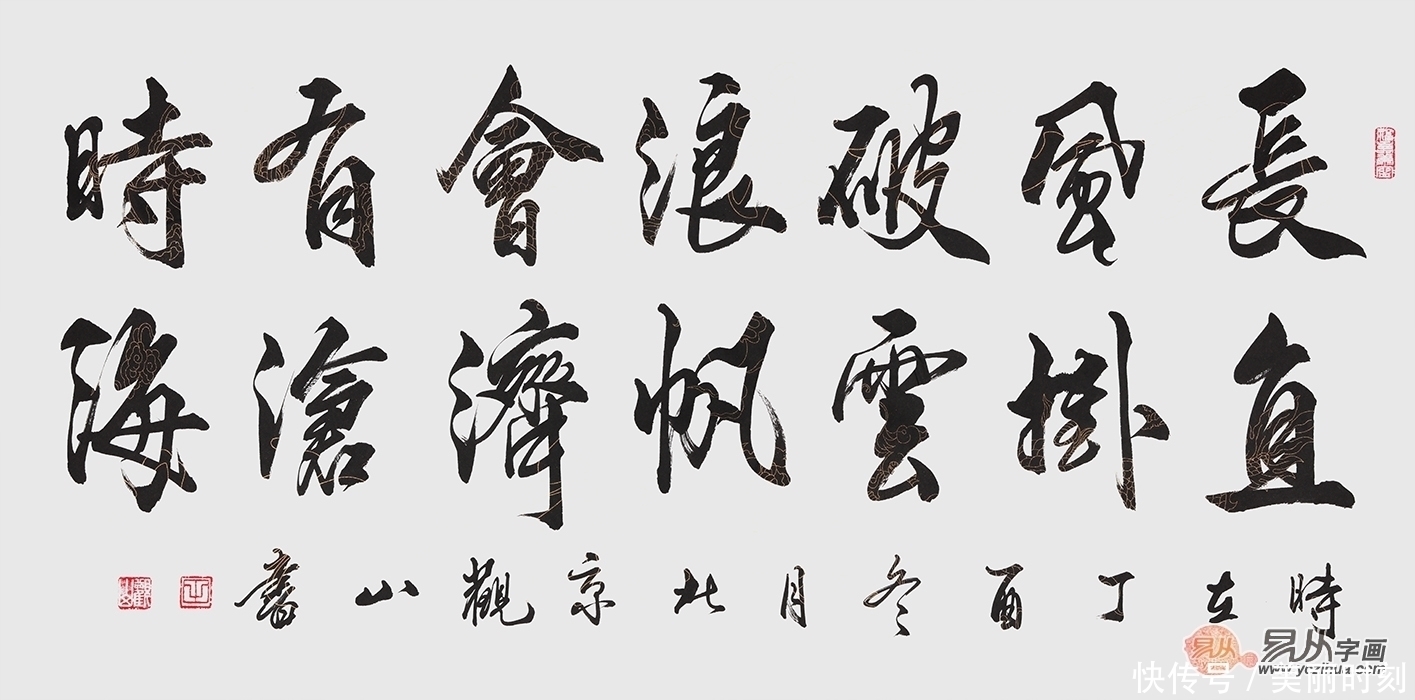 長風破浪會有時
直掛雲帆濟滄海
時在丁酉冬月北京觀山書
易从
易从字画
www.yczihua.com
快传号/美丽时刻